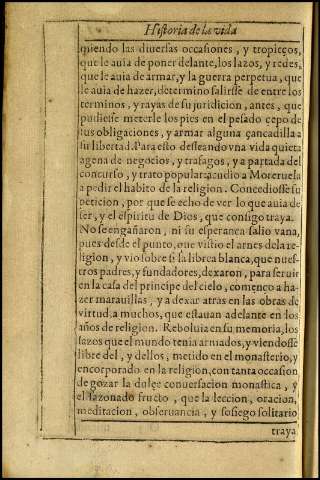 Historia de la vida
yuiendo las diuersas occasiones, y tropieços,
que le auia de poner delante, los lazos, y redes,
que le auia de armar, y la guerra perpetua, que
le auia de hazer, determino salirsse de entre los
terminos, y rayas de su juridicion, antes, que
pudiesse meterle los pies en el pesado çepo de
sus obligaciones, y armar alguna çancadilla a
su libertad. Para esto desseando vna vida quieta
agena de negocios, y trafagos, y apartada del
concurso, y trato popular: acudio a Moreruela
a pedir el habito de la religion. Concediosse su
peticion, por que se echo de ver lo que auia de
ser, y el espiritu de Dios, que consigo traya.
No se engañaron, ni su esperança salio vana,
pues desde el punto, que vistio el arnes dela re-
ligion, y vio sobre si la librea blanca, que nues-
tros padres, y fundadores, dexaron, para seruir
en la casa del principe del cielo, començo a ha-
zer marauillas, y a dexar atras en las obras de
virtud, a muchos, que estauan adelante en los
años de religion. Reboluia en su memoria, los
lazos que el mundo tenia armados, y viendosse
libre del, y dellos, metido en el monasterio, y
encorporado en la religion, con tanta occasion
de gozar la dulçe conuersacion monastica, y
el sazonado fructo, que la leccion, oracion,
meditacion, obseruancia, y sosiego solitario
traya